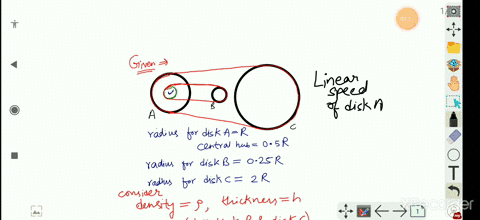 Given ⇒
Linear
speed
of disk A
A
B
C
radius for disk A = R
central hub = 0.5R
radius for disk B = 0.25R
radius for disk C = 2R
consider
density = ρ, thickness = h